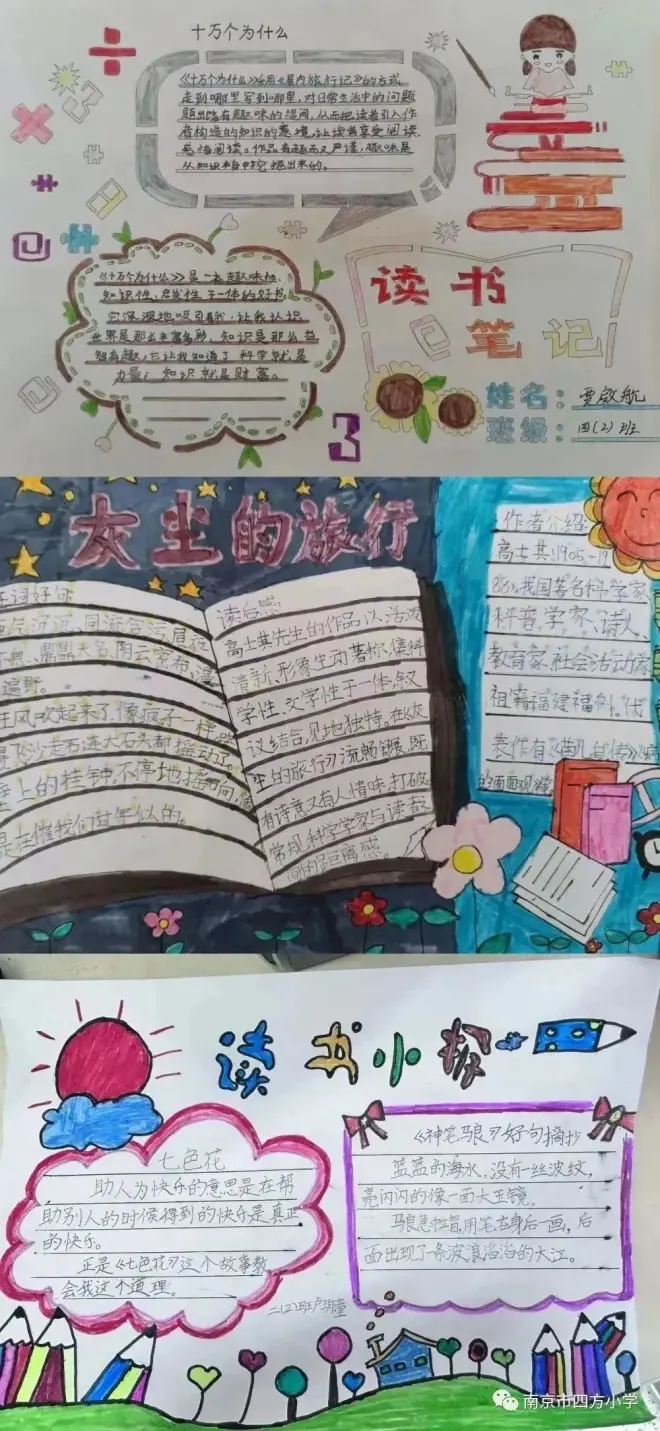 十万个为什么
《十万个为什么》采用《屋内旅行记》的方式,
走到哪里写到哪里,对日常生活中的问题
从而把读者引入作
者构造的知识的意境,让读者享受阅读
感悟阅读。作品有趣而又严谨,趣味是
从知识本身中挖掘出来的。
《十万个为什么》是一本趣味性、
知识性、启发性于一体的好书,
它深深地吸引着我,让我认识
世界是那么丰富多彩,知识是那么
有趣,它让我知道了科学就是
力量;知识就是财富。
读书
笔记
姓名:贾啟航
班级:四(2)班
3
3
灰尘的旅行
好词好句
同流合污
鼎鼎大名、阴云密布、
遍野。
狂风吹起来了,像疯子一样,
飞沙走石,连大石头都摇动
上的挂钟,不停地摇
是在催我们过年似的。
读后感:
高士其先生的作品以活泼
清新、形象生动著称,集科
学性、文学性于一体,叙
议结合,见地独特。在《灰
尘的旅行》流畅
有诗意又有人情味,打破
常规科学学家与读者
间的距离感。
作者介绍:
高士其,1905-19
88),我国著名科学家、
科普学家、诗人、
教育家、社会活动家
祖籍福建福州。代
表作有《菌儿自传》
的面面观
读书小报
七色花
助人为快乐的意思是在帮
助别人的时候得到的快乐是真正
的快乐。
正是《七色花》这个故事教
会我这个道理。
二(2)班卢玥童
《神笔马良》好句摘抄
蓝蓝的海水,没有一丝波纹,
亮闪闪的像一面大玉镜。
用笔在身后一画,后
面出现了一条波浪滔滔的大江。
南京市四方小学